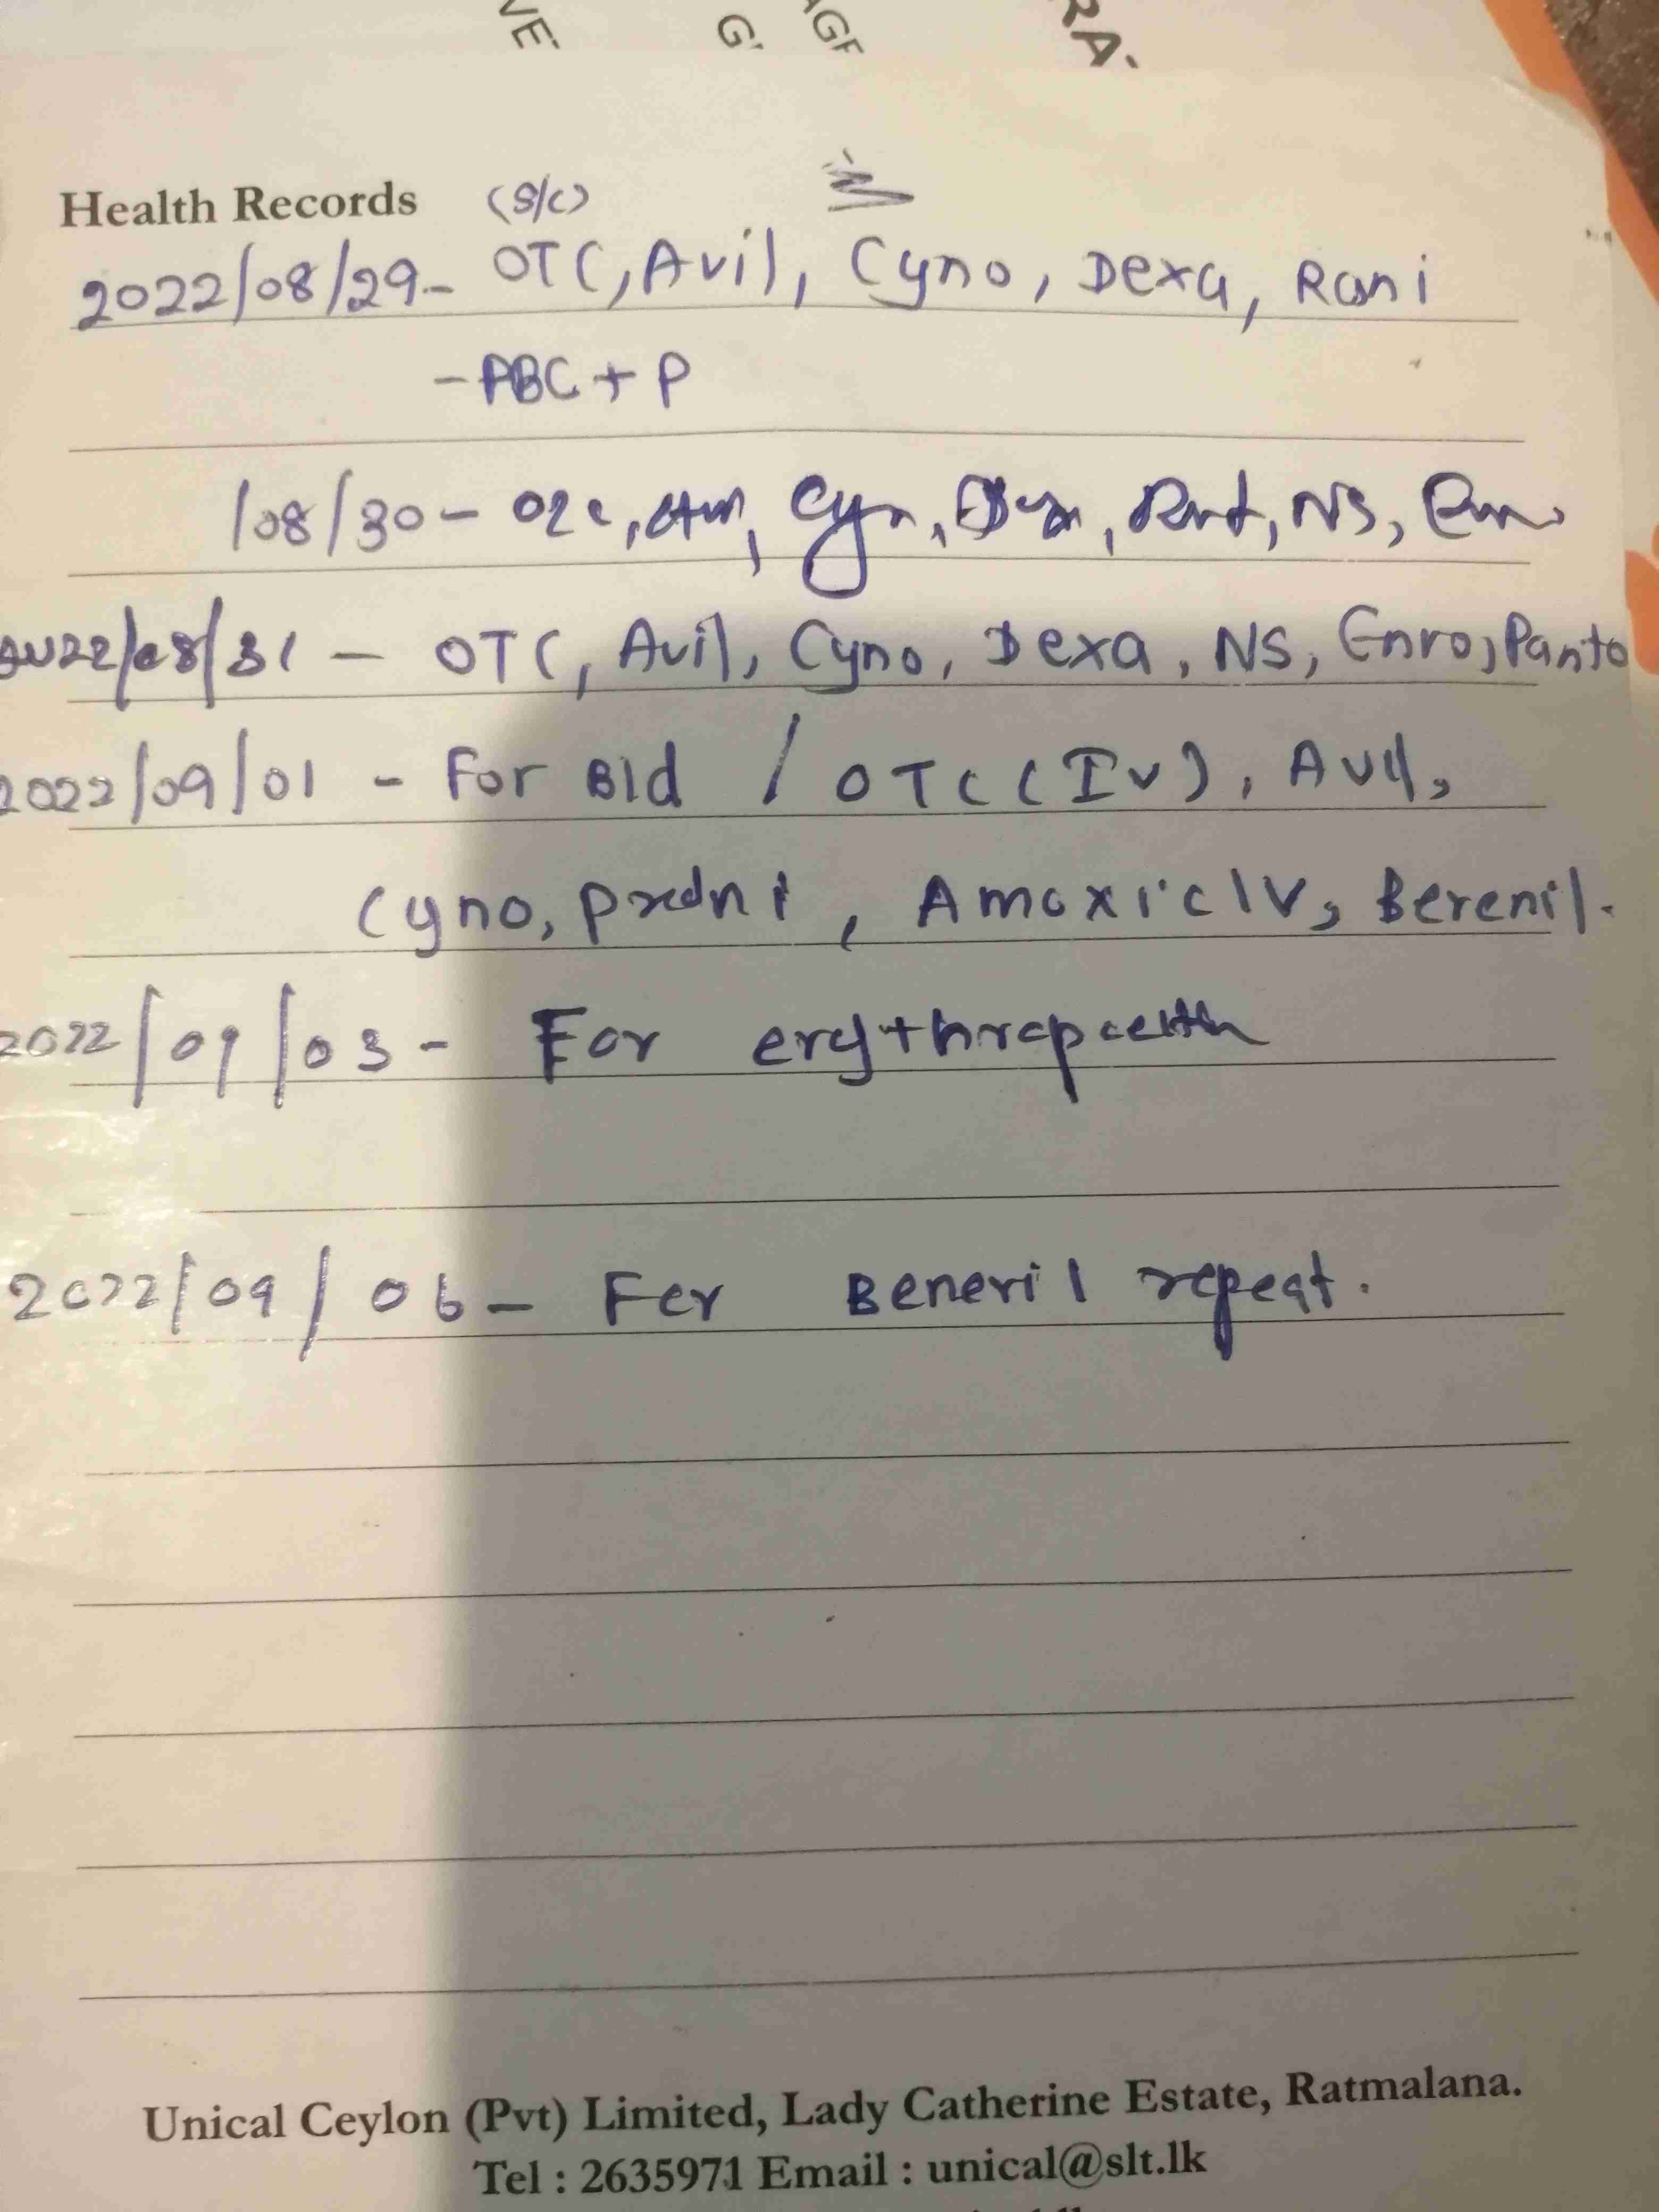 VE
G
AGE
RA
Health Records (S/C)
2022/08/29- OTC, Avil, Cyno, Dexa, Rani
- PBC + P
/08/30 - NS,
2022/08/31 - OTC, Avil, Cyno, Dexa, NS, Enro, Panto
2022/09/01 - For Bld / OTC (IV), Avil,
Cyno, predni, Amoxiclv, Berenil.
2022/09/03 - For
2022/09/06 - For Beneril repeat.
Unical Ceylon (Pvt) Limited, Lady Catherine Estate, Ratmalana.
Tel : 2635971 Email : unical@slt.lk